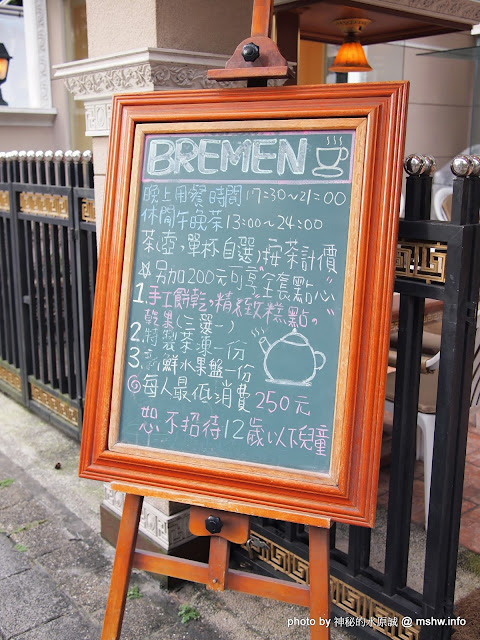 BREMEN
晚上用餐時間17:30~21:00
休閒午晚茶13:00~24:00
茶壺,單杯自選,按茶計價
☆另加200元可享"全套點心"
1.手工餅乾,精緻糕點。
乾果(三選一)
2.特製茶凍一份
3.新鮮水果盤一份
◎每人最低消費250元
恕不招待12歲以下兒童
photo by 神秘的水原誠 @ mshw.info